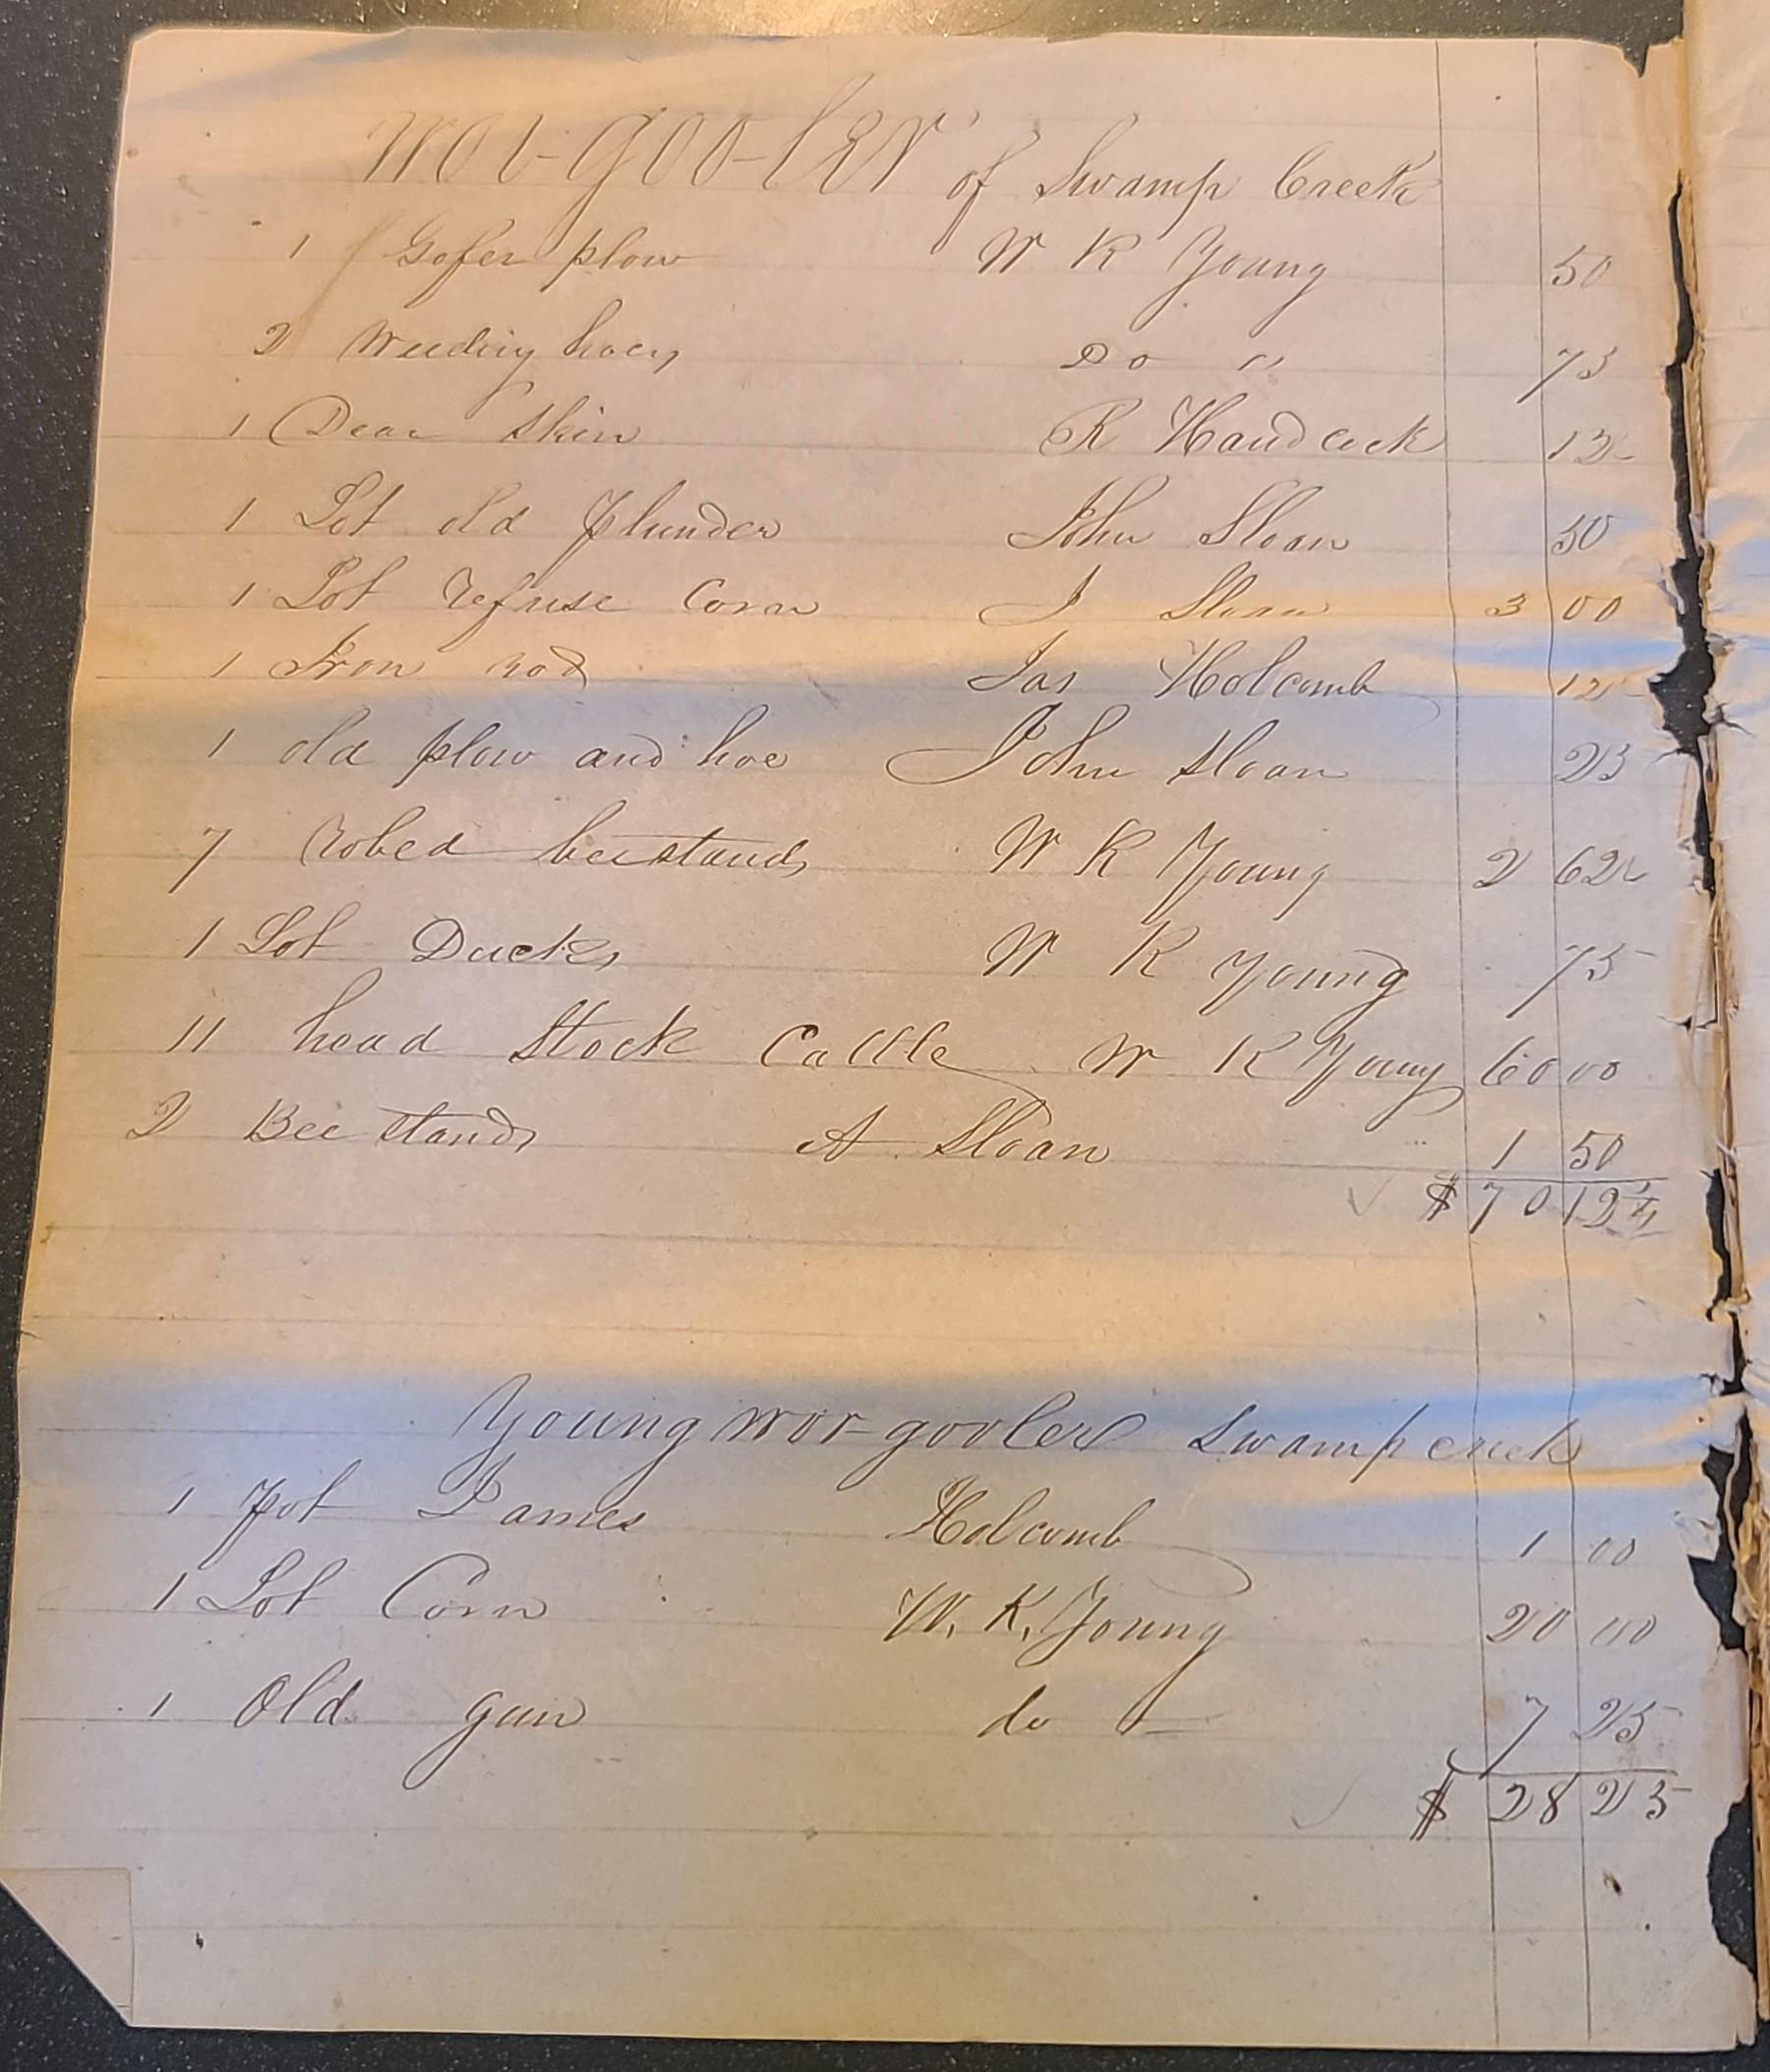 Wor-goo-ler of Swamp Creek
1 Gofer plow W K Young 50
2 Weeding hoes Do " 75
1 Dear Skin R Handcock 12
1 Lot old Plunder John Sloan 50
1 Lot refuse Corn J Sloan 3 00
1 Iron rod Jas Holcomb 12
1 old plow and hoe John Sloan 25
7 robed beestands W K Young 2 62
1 Lot Ducks W K Young 75
11 head Stock Cattle W K Young 60 00
2 Bee stands A Sloan 1 50
$ 70 12
Young wor-gooler Swamp creek
1 pot James Holcomb 1 00
1 Lot Corn W. K. Young 20 00
1 Old gun do 7 25
$ 28 25